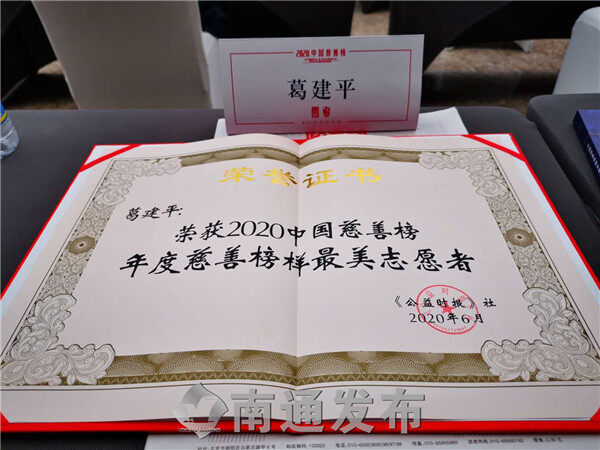 2020中国慈善榜
葛建平
荣誉证书
葛建平:
荣获2020中国慈善榜
年度慈善榜样最美志愿者
《公益时报》社
2020年6月
南通发布